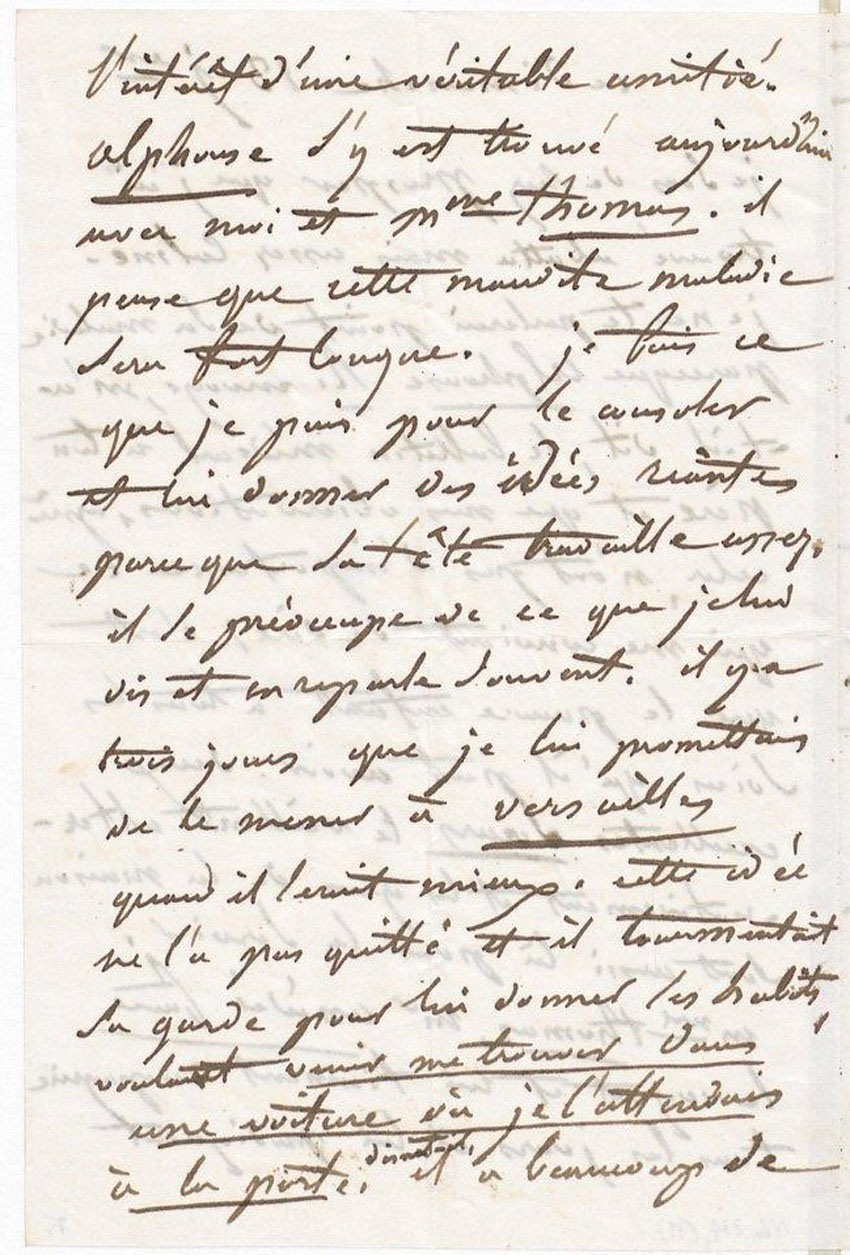 l'intérêt d'une véritable amitié.
alphonse s'y est trouvé aujourd'hui
avec moi et mme thomas. il
pense que cette maudite maladie
sera fort longue. je fais ce
que je puis pour le consoler
et lui donner des idées riantes
parce que sa tête travaille assez,
il se préoccupe de ce que je lui
dis et en reparle souvent. il y a
trois jours que je lui promettais
de le mener à versailles
quand il serait mieux. cette idée
ne l'a pas quitté et il tourmentait
sa garde pour lui donner ses habits,
voulant venir me trouver dans
une voiture où je l'attendais
à la porte, disait-il, il a beaucoup de